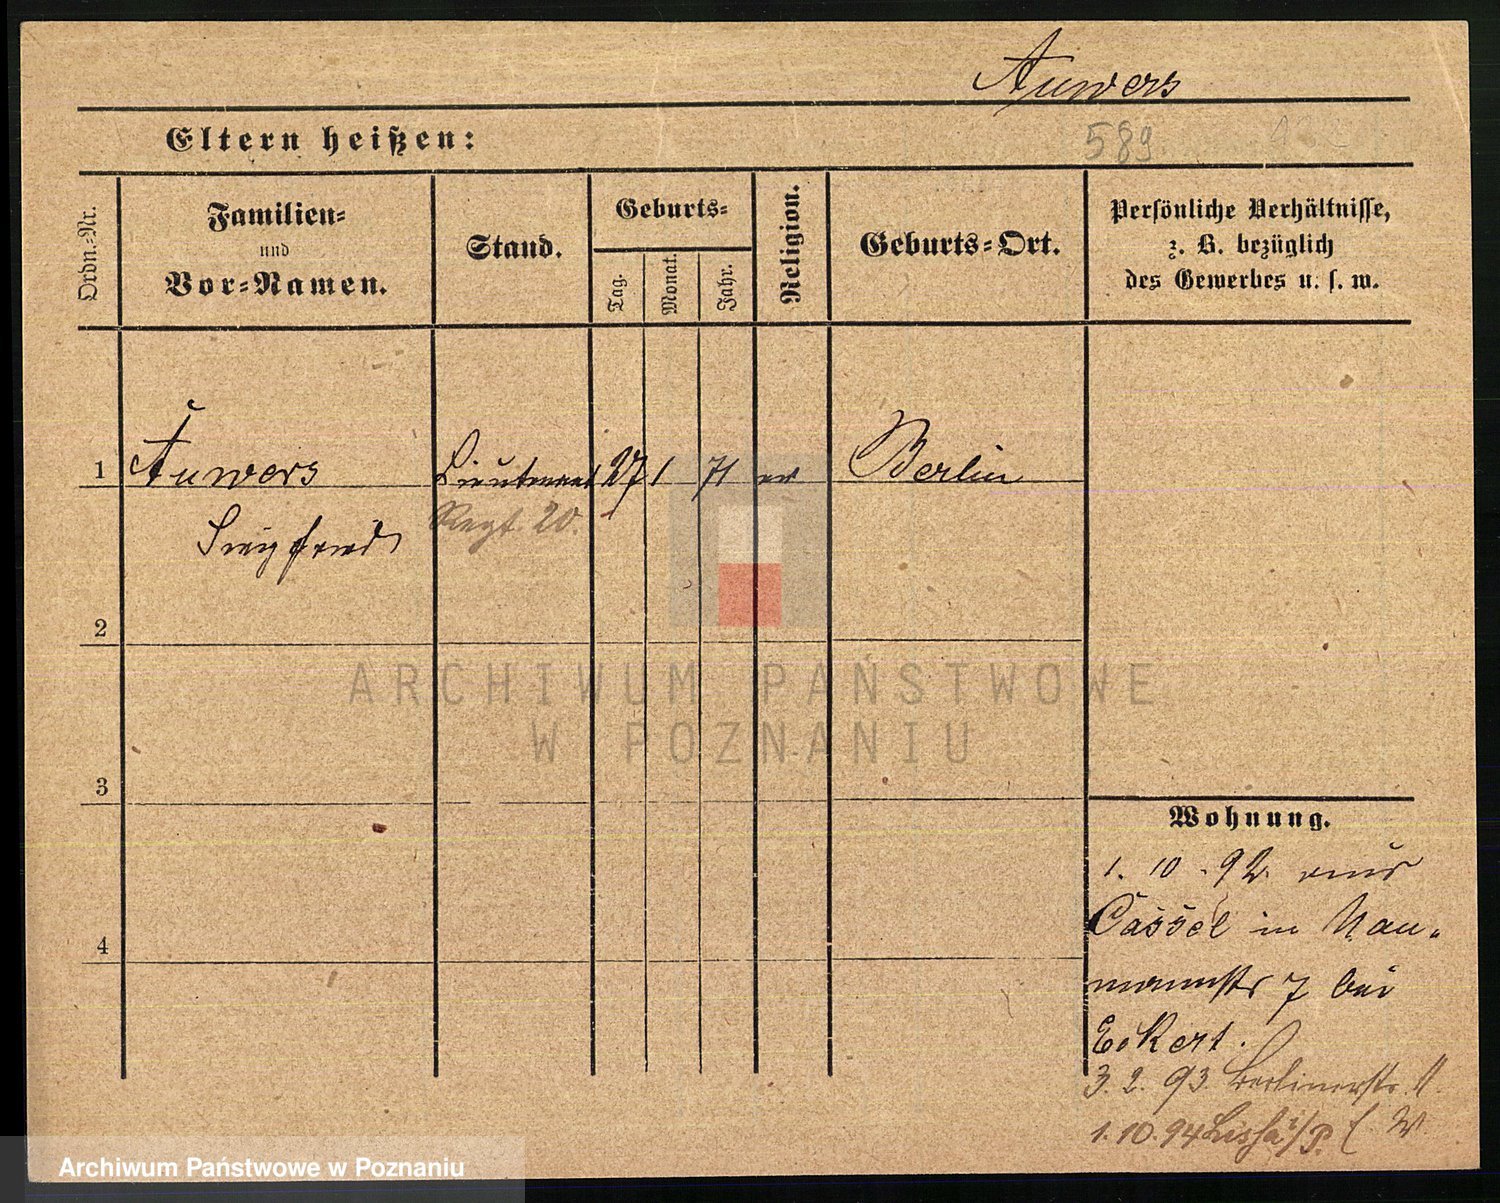 Auwers
Eltern heißen:
589
Ordn.=Nr.
Familien=
und
Vor=Namen.
Stand.
Geburts=
Tag.
Monat.
Jahr.
Religion.
Geburts=Ort.
Persönliche Verhältnisse,
z. B. bezüglich
des Gewerbes u. s. w.
1 Auwers Lieutenant 27 1 71 ev Berlin
Siegfried Regt. 20.
2
3
4
Wohnung.
1. 10. 92. aus
Cassel in Nau-
mannstr 7 bei
Eckert.
3. 2. 93. Berlinerstr. 11.
1. 10. 94 Lissa i/P.
ARCHIWUM PAŃSTWOWE
W POZNANIU
Archiwum Państwowe w Poznaniu